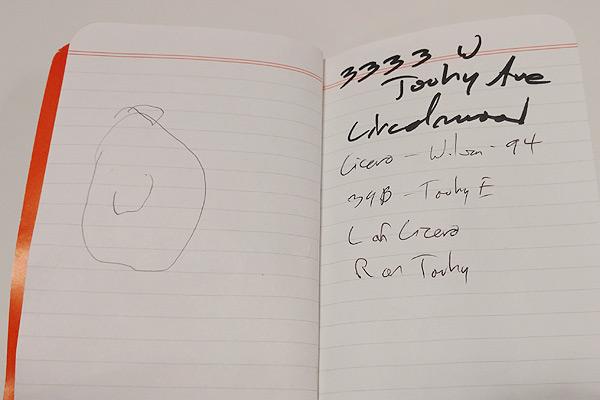 3333 W
Touhy Ave
Lincolnwood
Cicero - Wilson - 94
39B - Touhy E
L on Cicero
R on Touhy